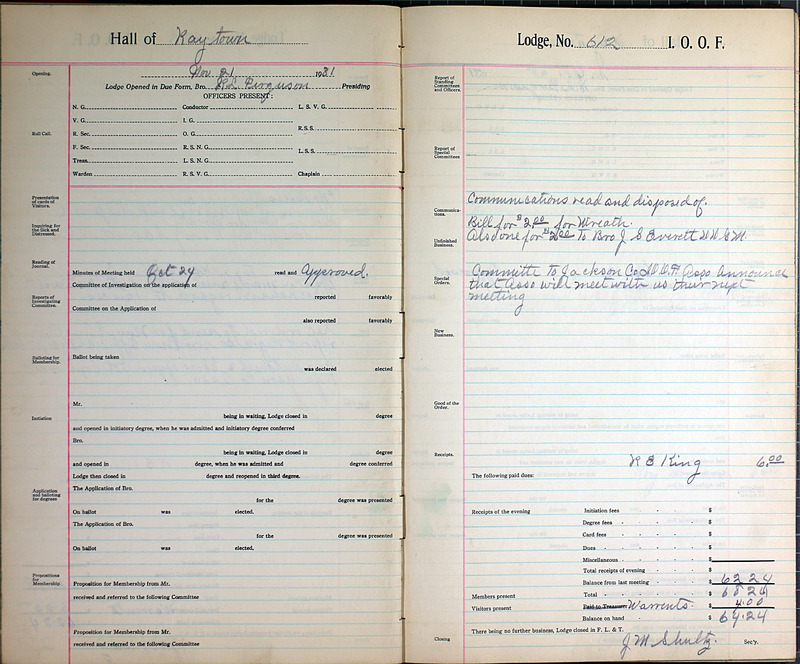 Hall of Raytown
Opening. Nov. 21 1931
Lodge Opened in Due Form, Bro. Ferguson Presiding
OFFICERS PRESENT:
Roll Call.
N. G. Conductor L. S. V. G.
V. G. I. G. R.S.S.
R. Sec. O. G.
F. Sec. R. S. N. G. L.S.S.
Treas. L. S. N. G.
Warden R. S. V. G. Chaplain
Presentation of cards of Visitors.
Inquiring for the Sick and Distressed.
Reading of Journal.
Minutes of Meeting held Oct 24 read and Approved.
Committee of Investigation on the application of
Reports of Investigating Committee.
reported favorably
Committee on the Application of
also reported favorably
Balloting for Membership.
Ballot being taken
was declared elected
Mr.
Initiation
being in waiting, Lodge closed in degree
and opened in initiatory degree, when he was admitted and initiatory degree conferred
Bro.
being in waiting, Lodge closed in degree
and opened in degree, when he was admitted and degree conferred
Lodge then closed in degree and reopened in third degree.
Application and balloting for degrees
The Application of Bro.
for the degree was presented
On ballot was elected.
The Application of Bro.
for the degree was presented
On ballot was elected,
Propositions for Membership.
Proposition for Membership from Mr.
received and referred to the following Committee
Proposition for Membership from Mr.
received and referred to the following Committee
Lodge, No. 612 I. O. O. F.
Report of Standing Committees and Officers.
Report of Special Committees
Communications.
Communications read and disposed of.
Bill for $2.00 for Wreath.
Unfinished Business.
Also one for $2.00 To Bro J S Everett
Special Orders.
Committe To Jackson Co Asso announce
that Asso will meet with us their next
meeting
New Business.
Good of the Order.
Receipts.
R E King 6.00
The following paid dues:
Receipts of the evening Initiation fees $
Degree fees $
Card fees $
Dues $
Miscellaneous $
Total receipts of evening $
Balance from last meeting $ 62 24
Members present Total $ 68 24
Visitors present Paid to Treasurer Warrents $ 4.00
Balance on hand $ 64.24
There being no further business, Lodge closed in F. L. & T.
Closing J M Shultz. Sec'y.